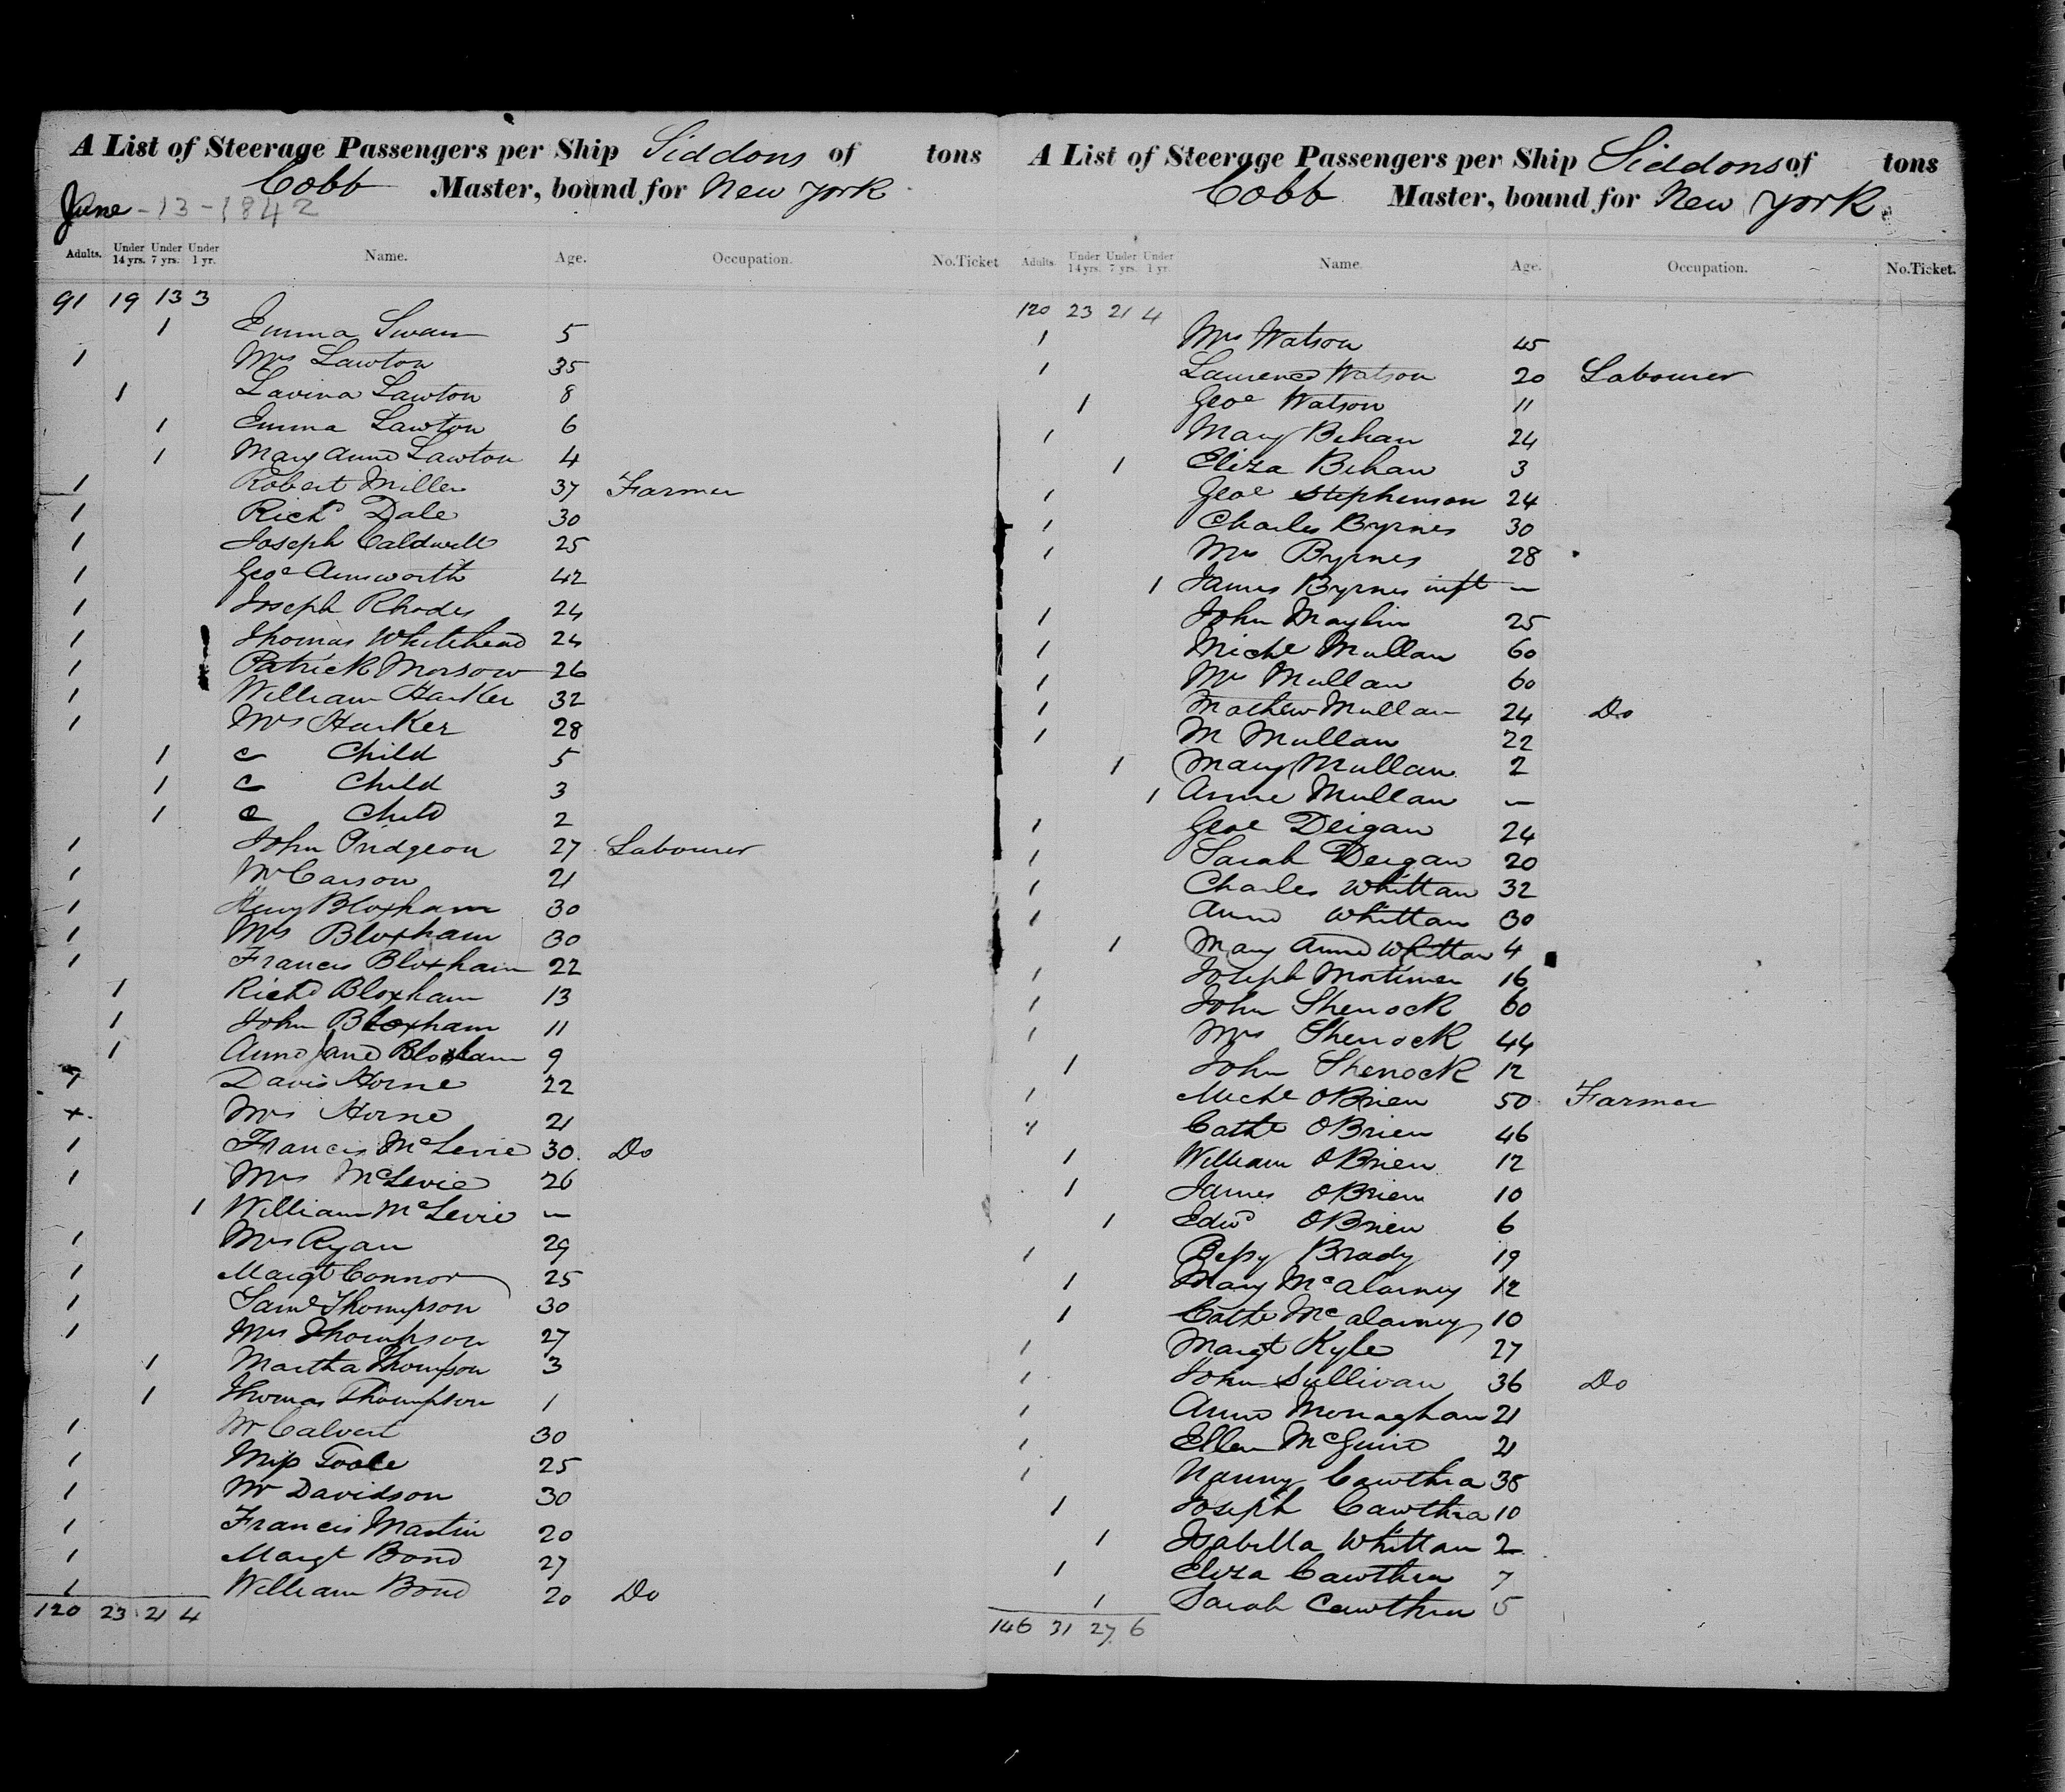 A List of Steerage Passengers per Ship Siddons of tons
Cobb Master, bound for New York
June - 13 - 1842
Adults. Under 14 yrs. Under 7 yrs. Under 1 yr. Name. Age. Occupation. No. Ticket
91 19 13 3
1 Emma Swan 5
1 Mrs Lawton 35
1 Lavina Lawton 8
1 Emma Lawton 6
1 Mary Anne Lawton 4
1 Robert Miller 37 Farmer
1 Richd Dale 30
1 Joseph Caldwell 25
1 Geoe Ainsworth 42
1 Joseph Rhodes 24
1 Thomas Whitehead 24
1 Patrick Morsow 26
1 William Harker 32
1 Mrs Harker 28
1 Child 5
1 Child 3
1 Child 2
1 John Pridgeon 27 Labourer
1 Mr Carson 21
1 Henry Bloxham 30
1 Mrs Bloxham 30
1 Francis Bloxham 22
1 Richd Bloxham 13
1 John Bloxham 11
1 Anne Jane Bloxham 9
1 Davis Horne 22
Mrs Horne 21
1 Francis McLevie 30 Do
1 Mrs McLevie 26
1 William McLevie —
1 Mrs Ryan 29
1 Margt Connor 25
1 Saml Thompson 30
1 Mrs Thompson 27
1 Martha Thompson 3
1 Thomas Thompson 1
1 Mr Calvert 30
1 Miss Toole 25
1 Mr Davidson 30
1 Francis Martin 20
1 Margt Bond 27
1 William Bond 20 Do
120 23 21 4
A List of Steerage Passengers per Ship Siddons of tons
Cobb Master, bound for New York
Adults. Under 14 yrs. Under 7 yrs. Under 1 yr. Name. Age. Occupation. No. Ticket.
120 23 21 4
1 Mrs Watson 45
1 Laurence Watson 20 Labourer
1 Geoe Watson 11
1 Mary Behan 24
1 Eliza Behan 3
1 Geoe Stephenson 24
1 Charles Byrnes 30
1 Mrs Byrnes 28
1 James Byrnes inft —
1 John Maylin 25
1 Michl Mullan 60
1 Mrs Mullan 60
1 Mathew Mullan 24 Do
1 M Mullan 22
1 Mary Mullan 2
1 Anne Mullan —
1 Geoe Deigan 24
1 Sarah Deigan 20
1 Charles Whittan 32
1 Anne Whittan 30
1 Mary Anne Whittan 4
1 Joseph Mortimer 16
1 John Sherrock 60
1 Mrs Sherrock 44
1 John Sherrock 12
1 Michl OBrien 50 Farmer
1 Cathe OBrien 46
1 William OBrien 12
1 James OBrien 10
1 Edwd OBrien 6
1 Bessy Brady 19
1 Mary McAlarney 12
1 Cathe McAlarney 10
1 Margt Kyle 27
1 John Sullivan 36 Do
1 Anne Monaghan 21
1 Ellen McGuire 21
1 Nanny Cawthra 38
1 Joseph Cawthra 10
1 Isabella Whittan 2
1 Eliza Cawthra 7
1 Sarah Cawthra 5
146 31 27 6